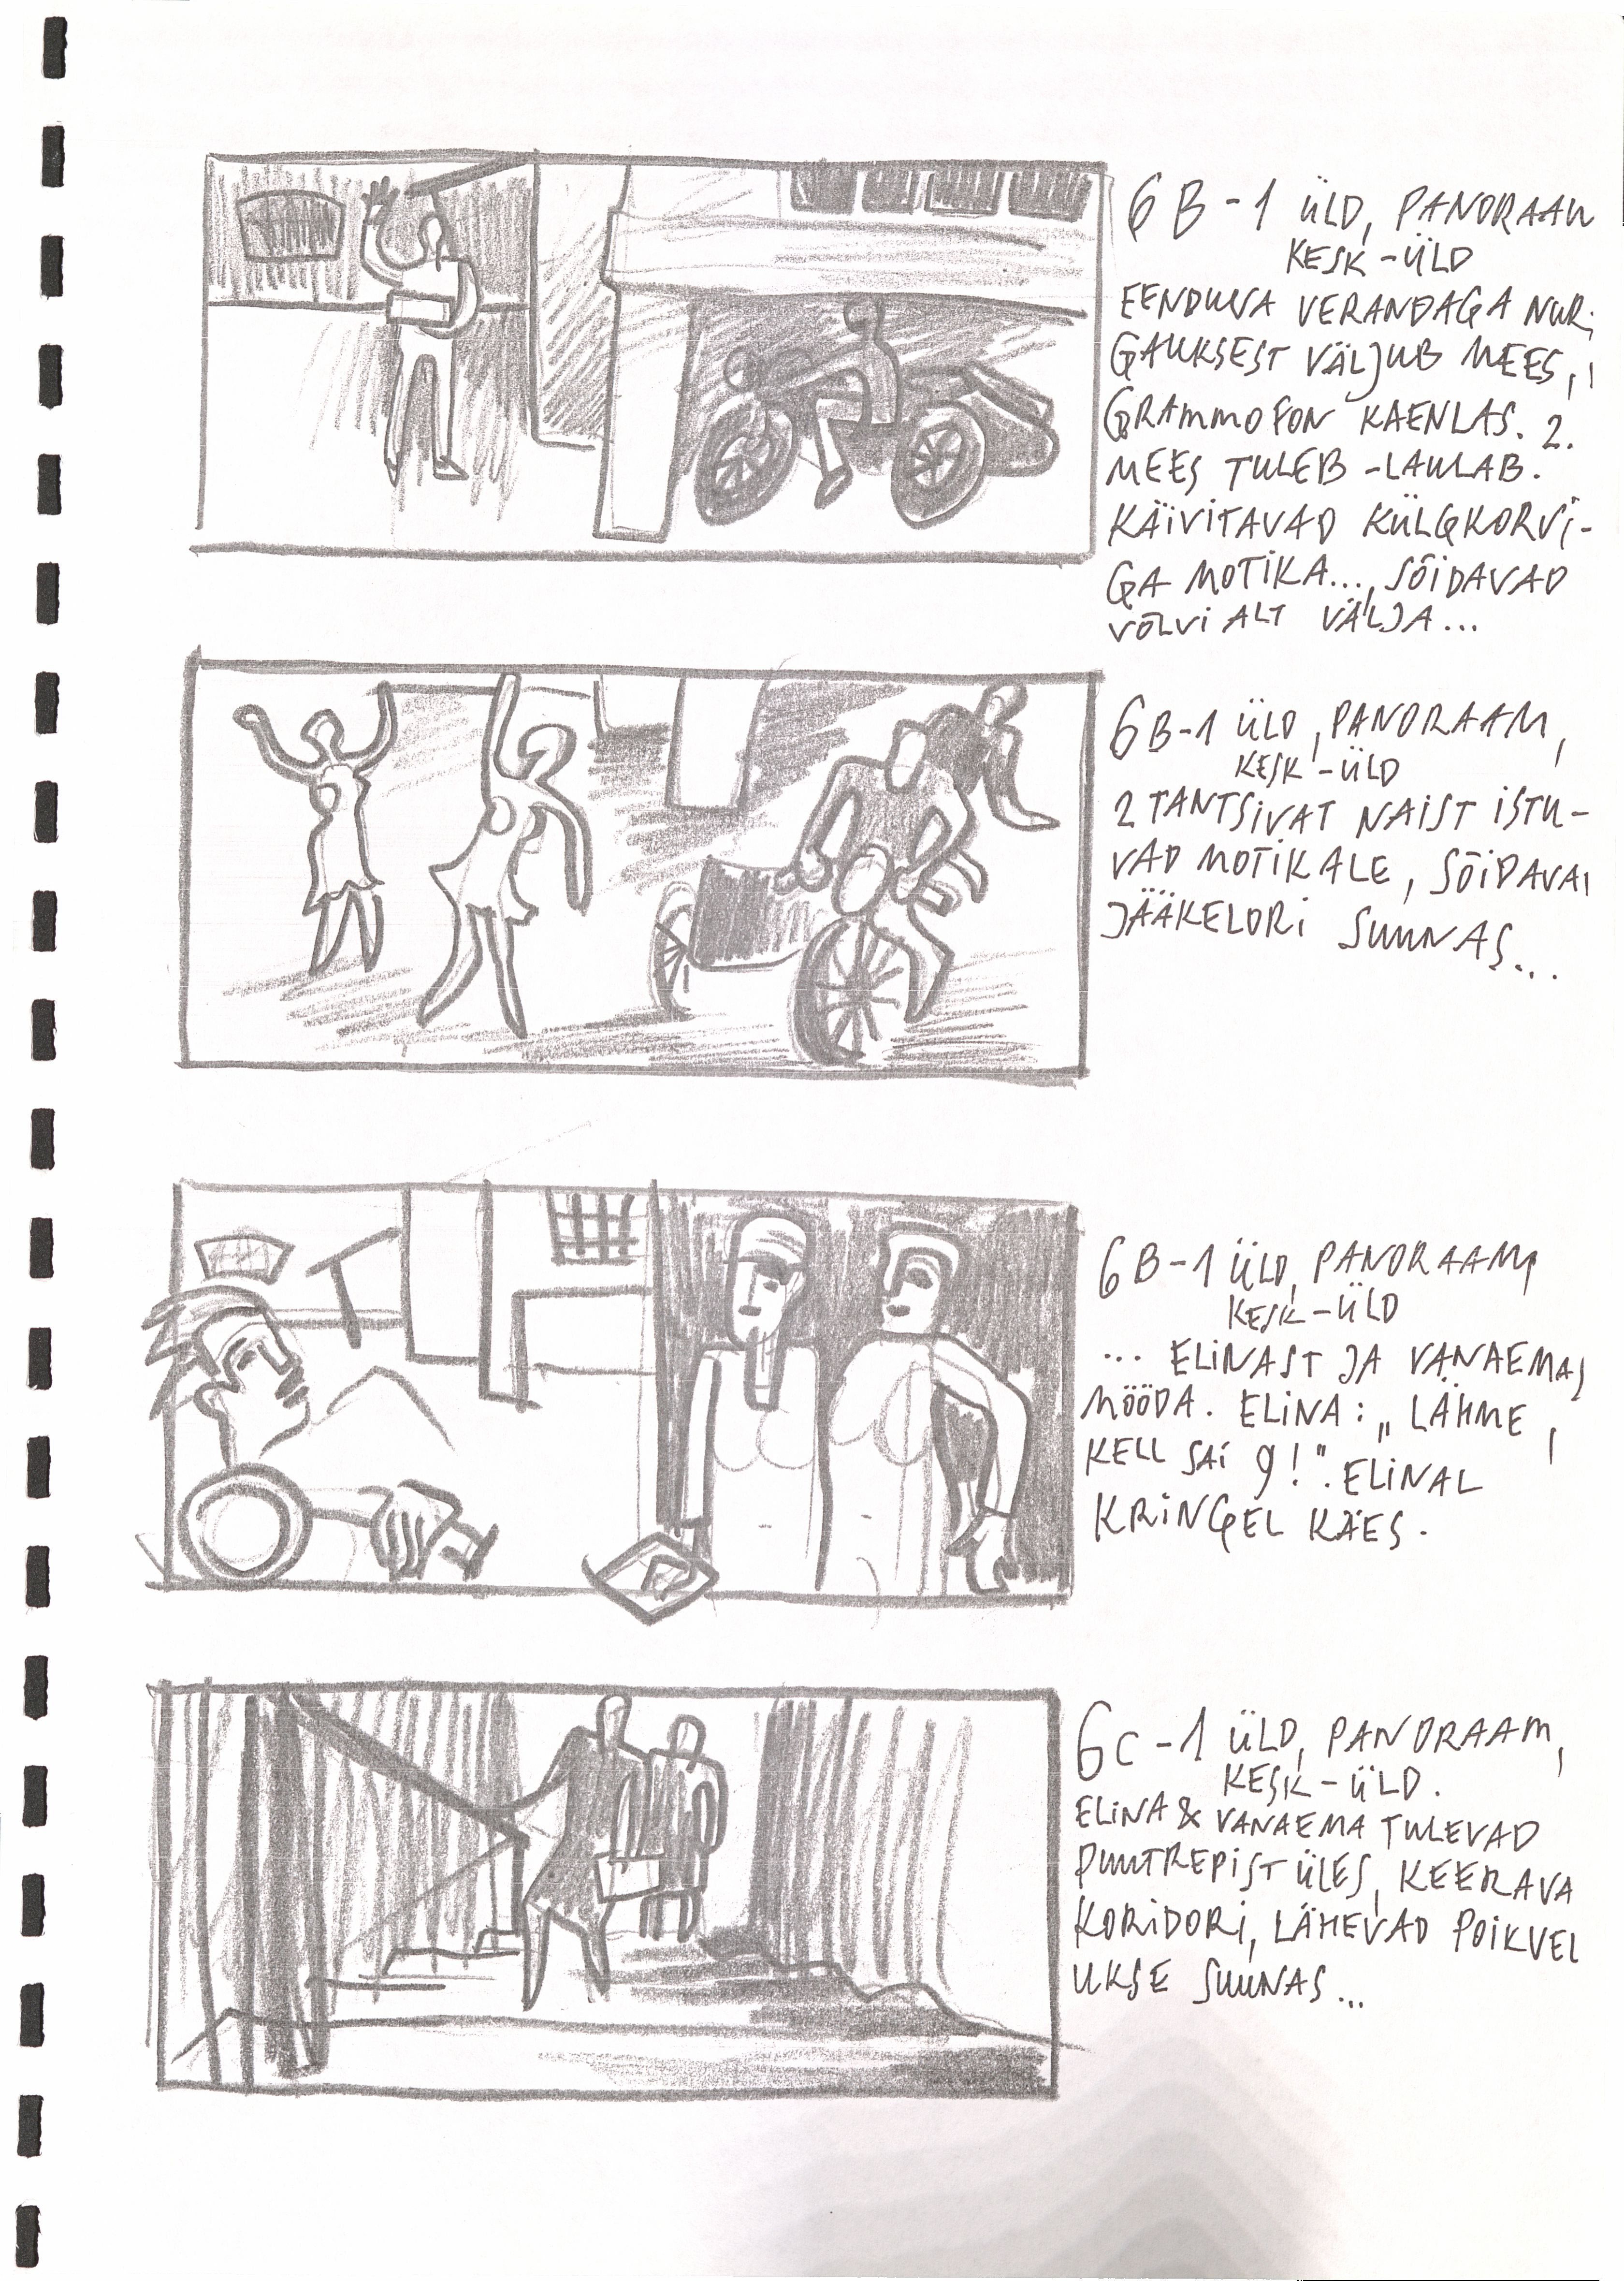 6B-1 ÜLD, PANORAAM
KESK-ÜLD
EENDUVA VERANDAGA NUR-
GAUKSEST VÄLJUB MEES, 1
GRAMMOFON KAENLAS. 2.
MEES TULEB -LAULAB.
KÄIVITAVAD KÜLGKORVI-
GA MOTIKA..., SÕIDAVAD
VÕLVI ALT VÄLJA...
6B-1 ÜLD, PANORAAM,
KESK-ÜLD
2 TANTSIVAT NAIST ISTU-
VAD MOTIKALE, SÕIDAVAD
JÄÄKELDRI SUUNAS...
6B-1 ÜLD, PANORAAM,
KESK-ÜLD
... ELINAST JA VANAEMAS
MÖÖDA. ELINA: „LÄHME,
KELL SAI 9!". ELINAL
KRINGEL KÄES.
6C-1 ÜLD, PANORAAM,
KESK-ÜLD.
ELINA & VANAEMA TULEVAD
PUUTREPIST ÜLES, KEERAVA
KORIDORI, LÄHEVAD POIKVEL
UKSE SUUNAS...